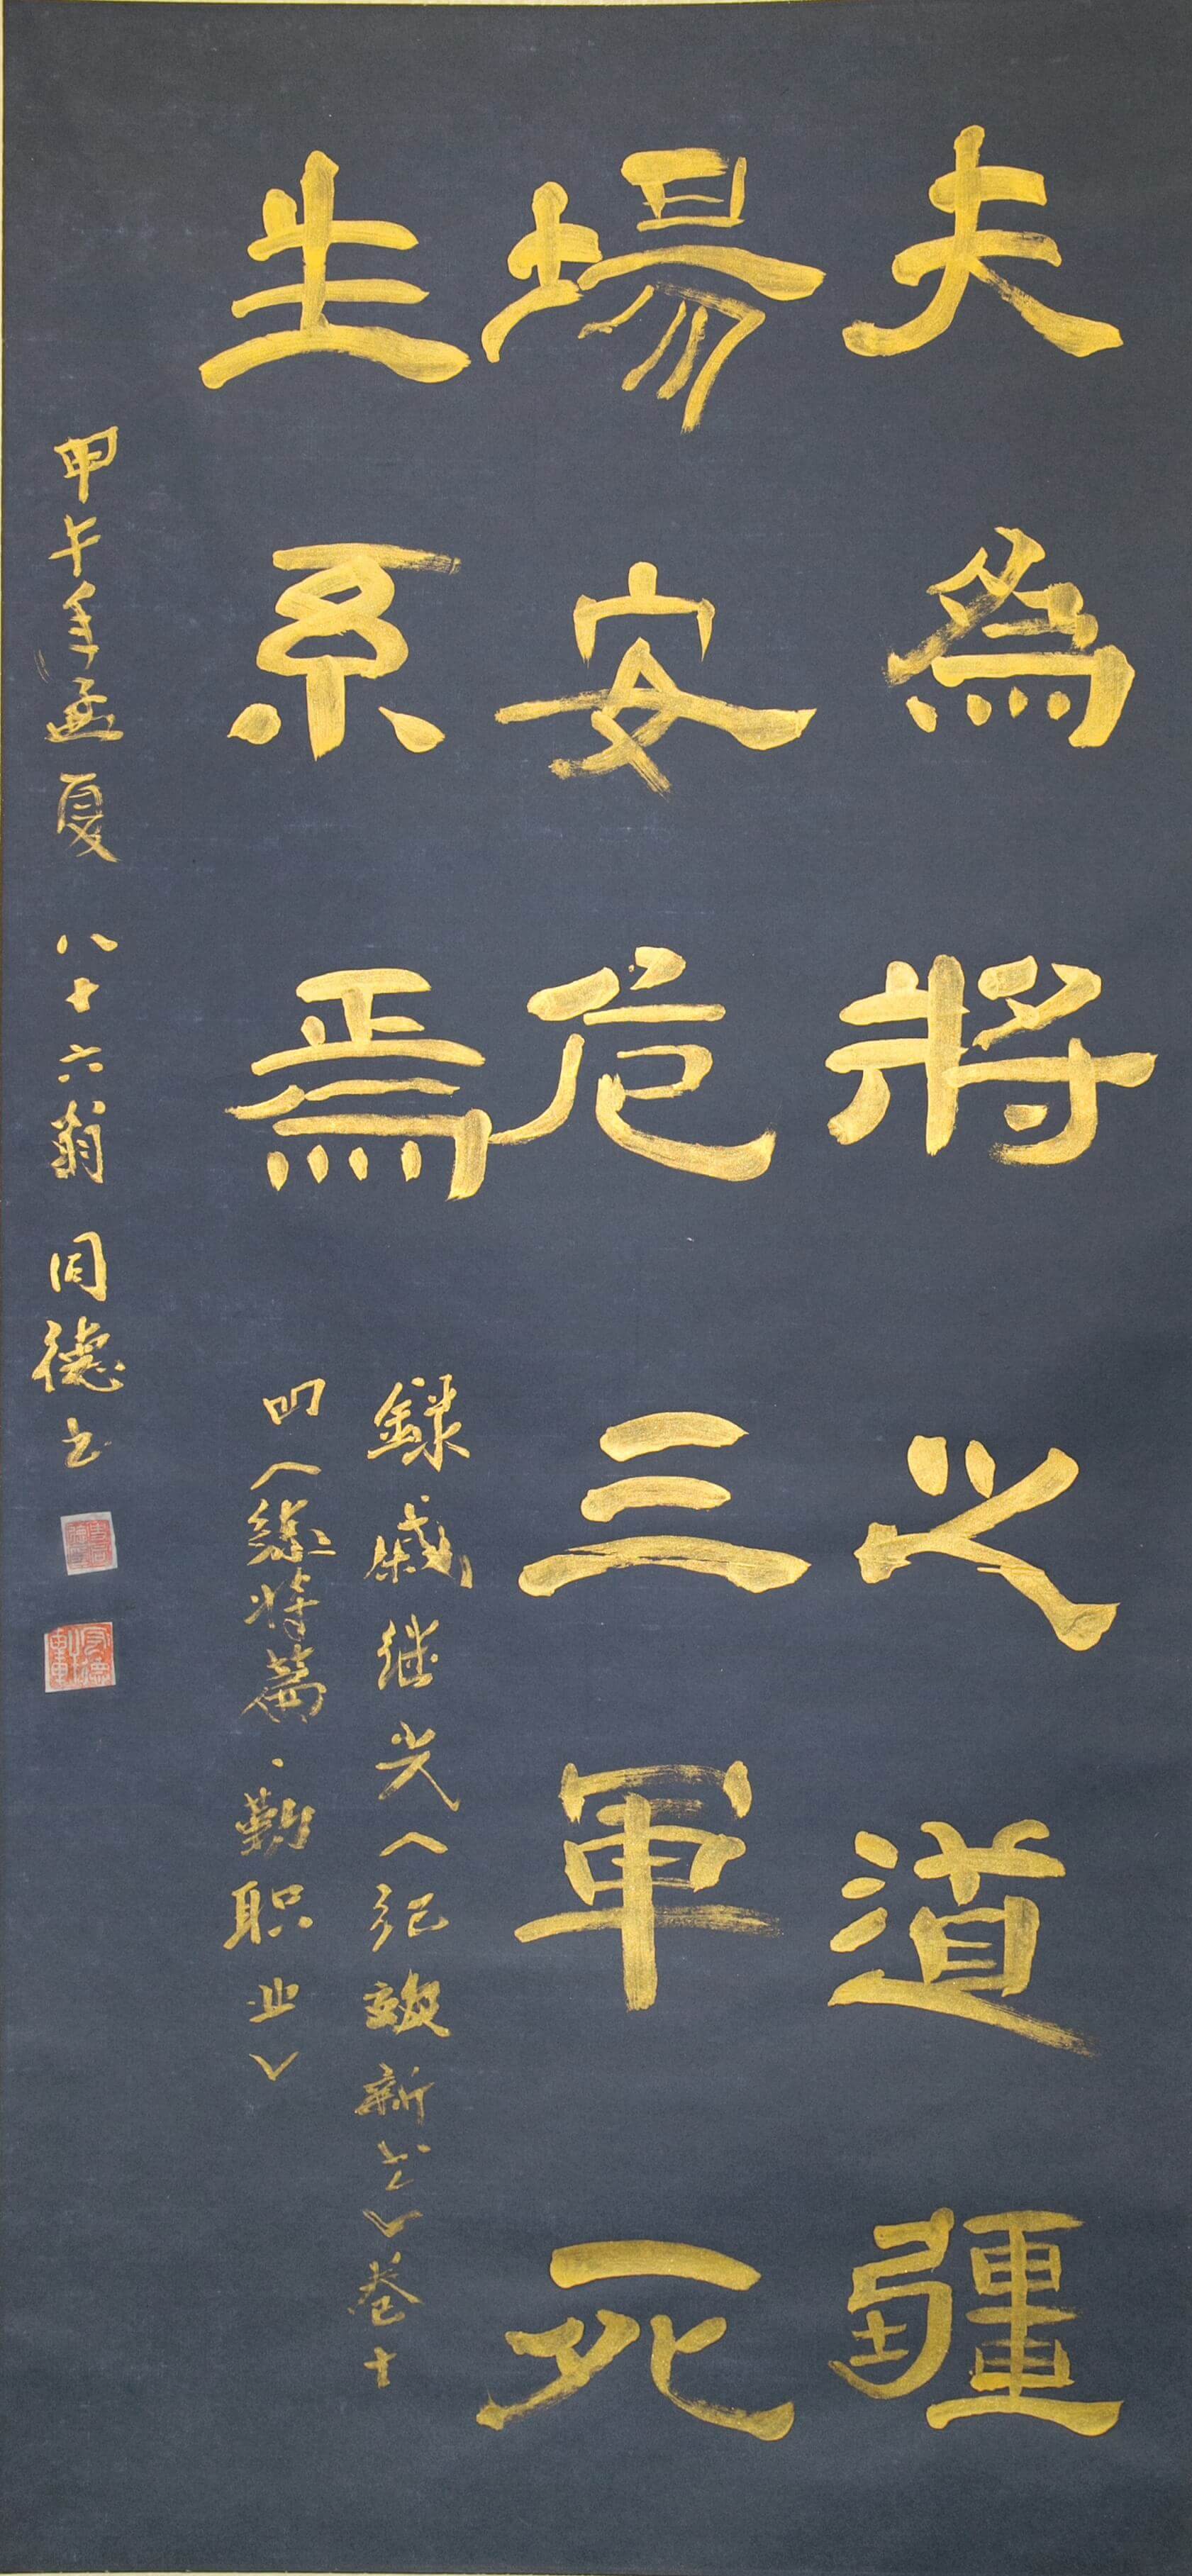 夫為將之道疆
場安危三軍死
生系焉
錄戚继光《纪效新书》卷十
四《練将篇·勤职业》
甲午年孟夏 八十六翁 同德书